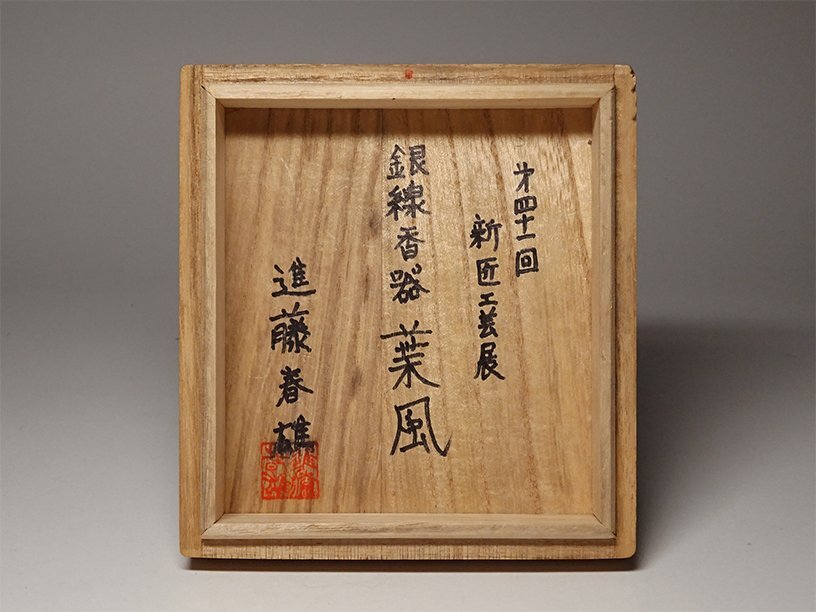 第四十一回
新匠工芸展
銀線香器 葉風
進藤春雄